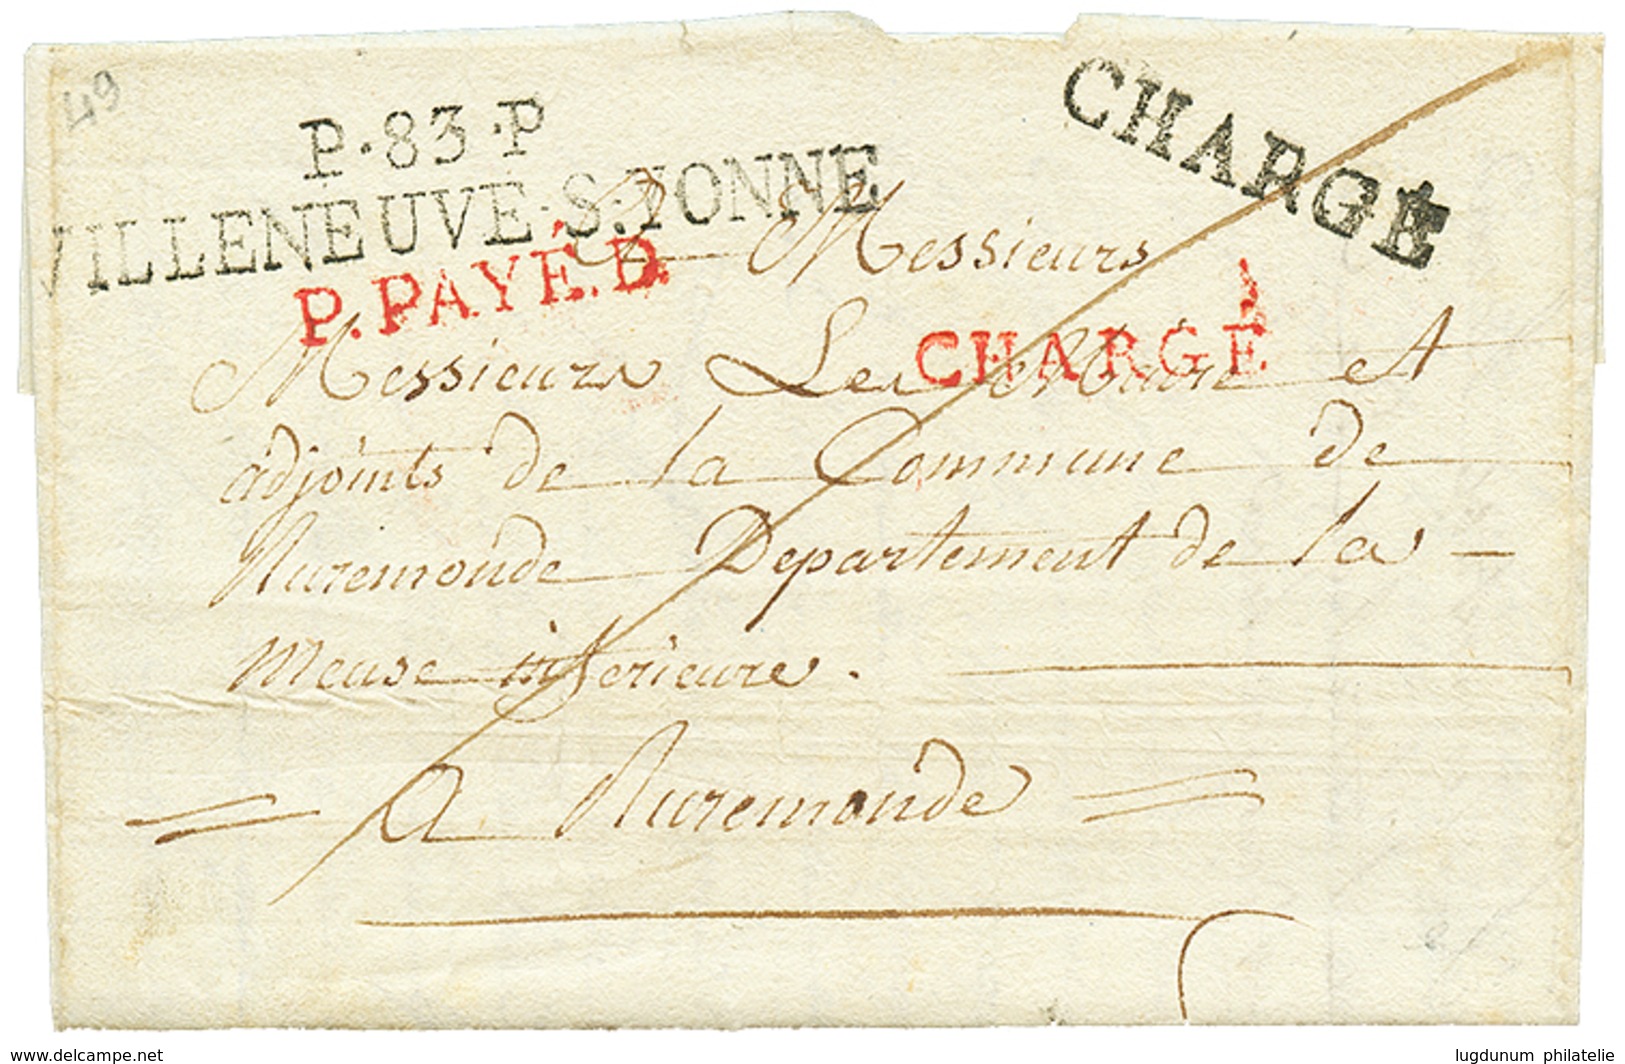 49
P.83.P
CHARGÉ
VILLENEUVE-S-YONNE
A Messieurs
P.PAYÉ.D.
CHARGÉ
Messieurs Les Maire et
adjoints de la Commune de
Ruremonde Departement de la
meuse inferieure.
A Ruremonde
www.delcampe.com
lugdunum philatelie